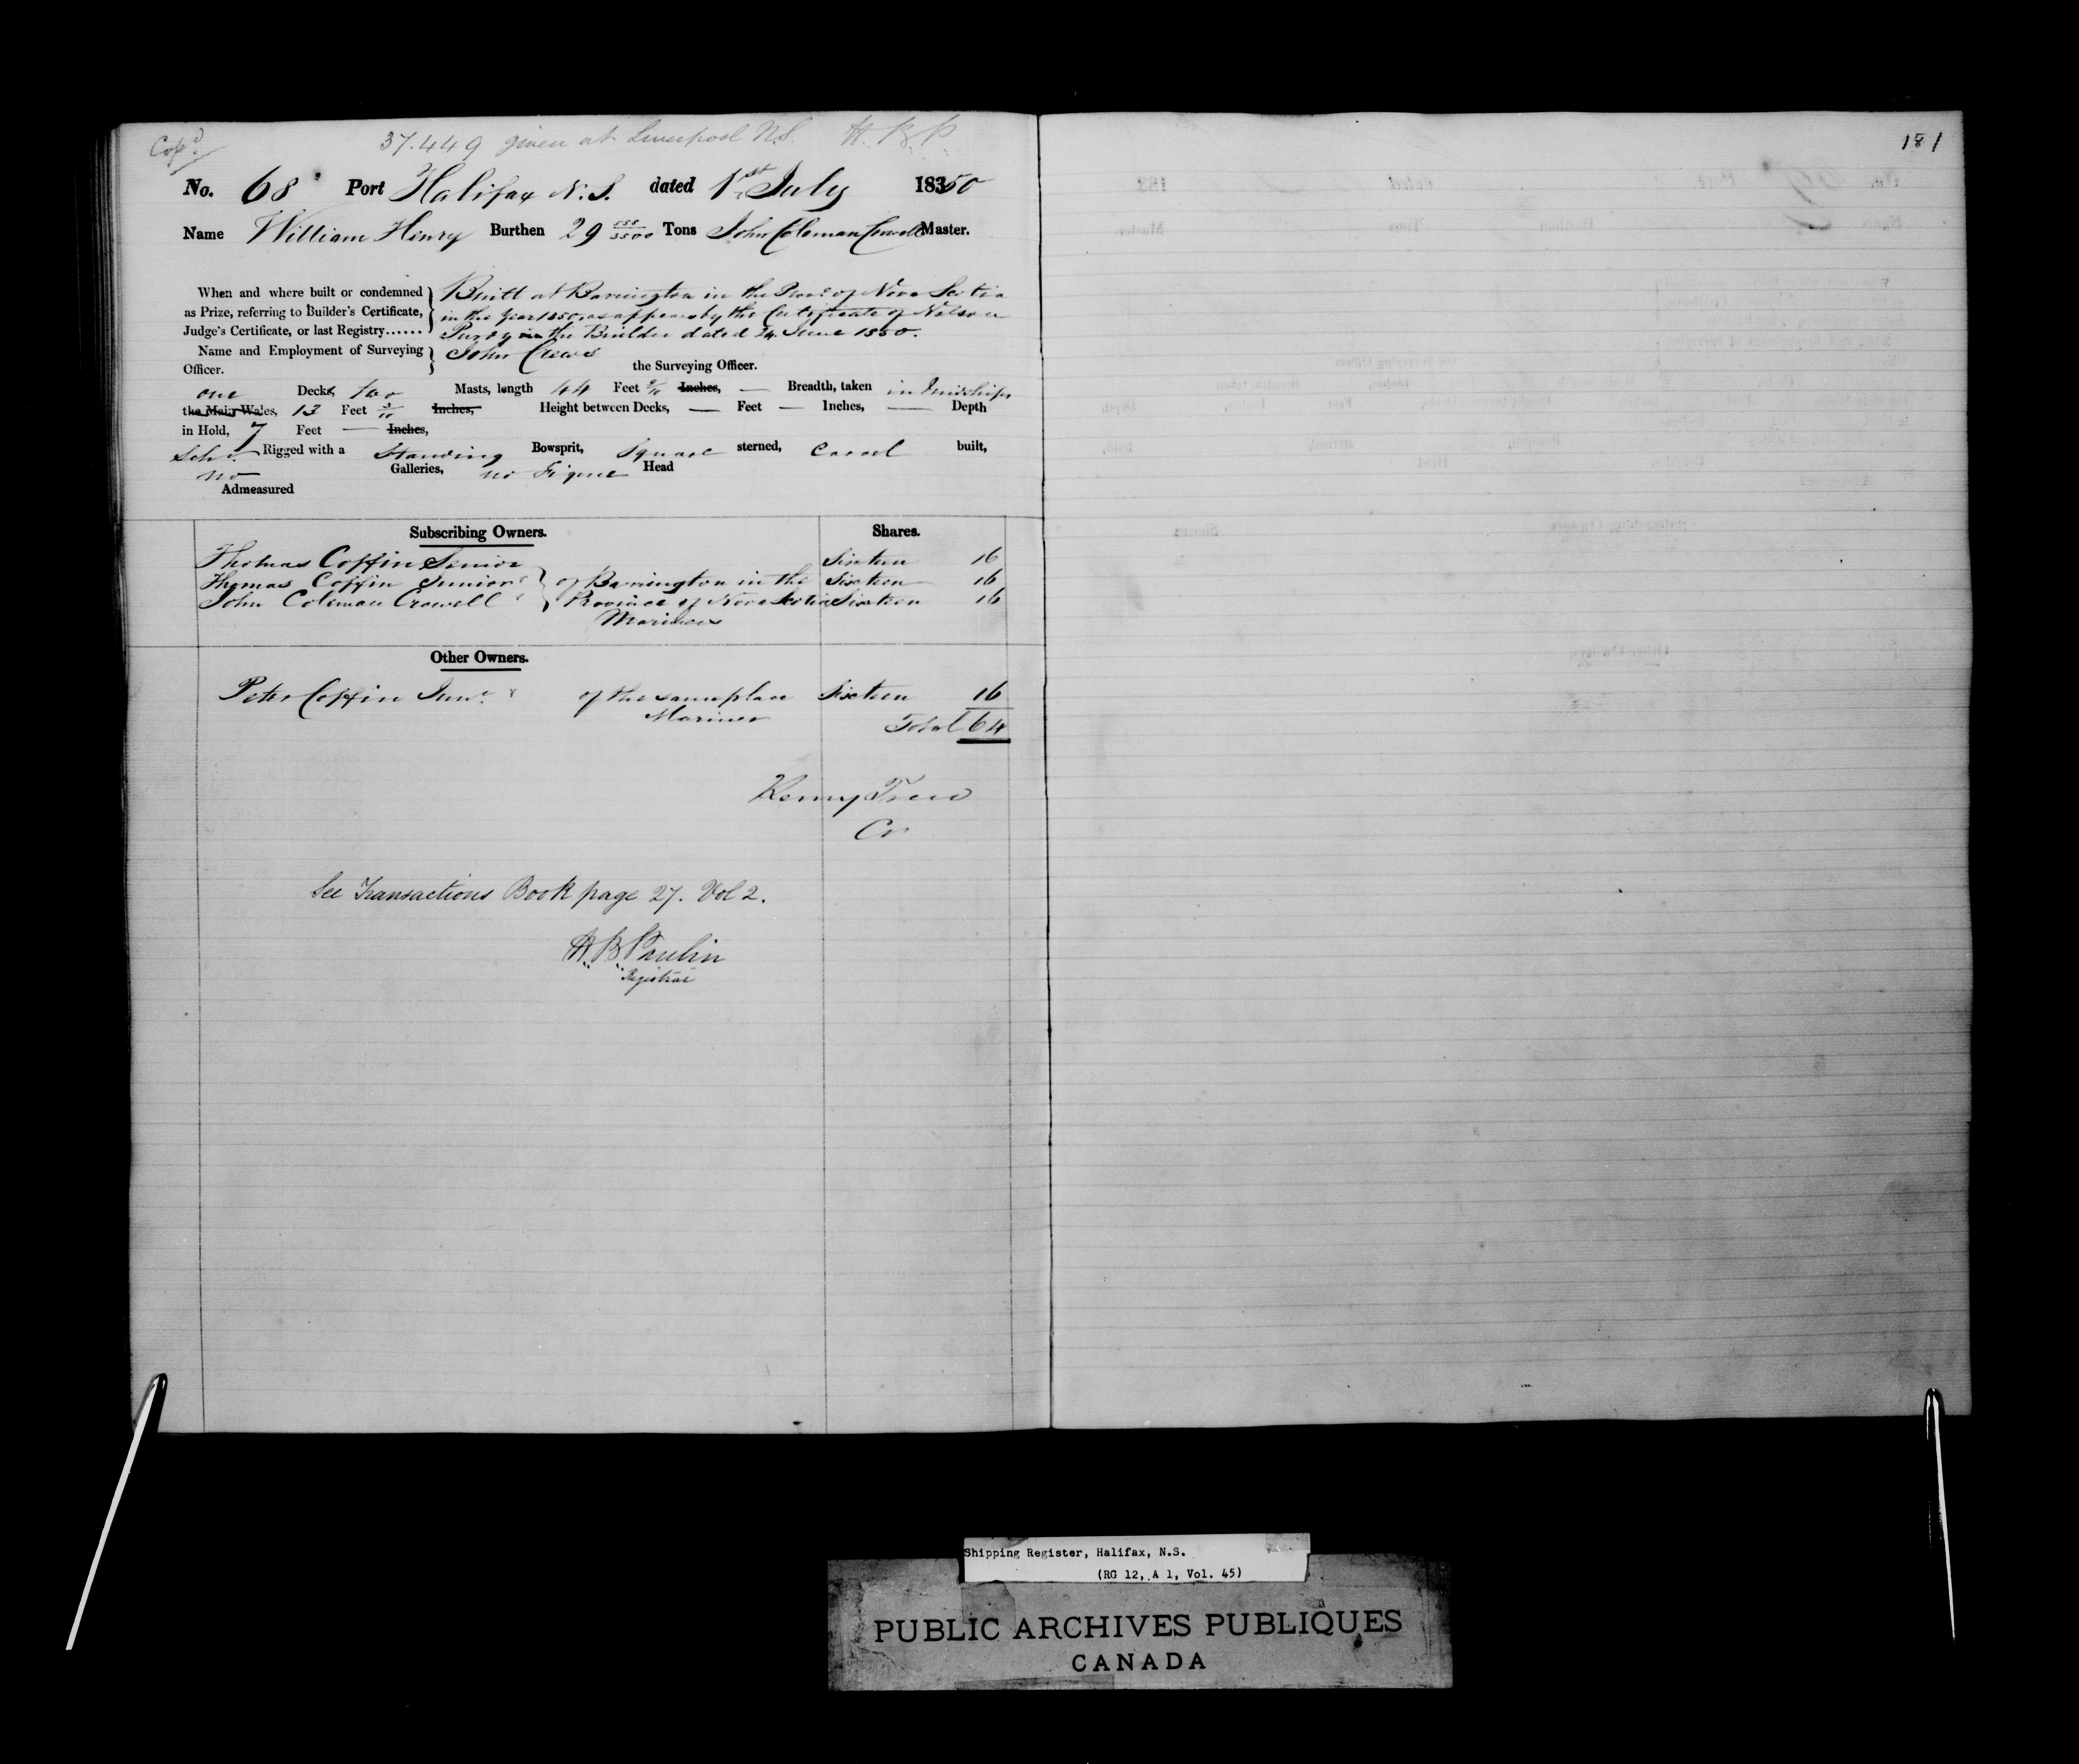 Cop'd
37.449 given at Liverpool N.S. H.B.P.
181
No. 68 Port Halifax N.S. dated 1st July 18350
Name William Henry Burthen 29 555/3500 Tons John Coleman Crowell Master.
When and where built or condemned as Prize, referring to Builder's Certificate, Judge's Certificate, or last Registry......
Built at Barrington in the Prov.ce of Nova Scotia
in the Year 1850, as appears by the Certificate of Nelson
Purdy the Builder dated 24 June 1850.
Name and Employment of Surveying Officer.
John Crews
the Surveying Officer.
one Decks, two Masts, length 44 Feet Inches, — Breadth, taken in Midships
the Main Wales, 13 Feet Inches, Height between Decks, — Feet — Inches, — Depth
in Hold, 7 Feet — Inches,
Sch.r Rigged with a Standing Bowsprit, Square sterned, Carvel built,
no Galleries, no Figure Head
Admeasured
Subscribing Owners. Shares.
Thomas Coffin Senior Sixteen 16
Thomas Coffin Junior of Barrington in the Sixteen 16
John Coleman Crowell Province of Nova Scotia Sixteen 16
Mariners
Other Owners.
Peter Coffin Jun.r of the same place Sixteen 16
Mariner Total 64
Cr
See Transactions Book page 27. Vol 2.
H.B. Paulin
Registrar
Shipping Register, Halifax, N.S.
(RG 12, A 1, Vol. 45)
PUBLIC ARCHIVES PUBLIQUES
CANADA